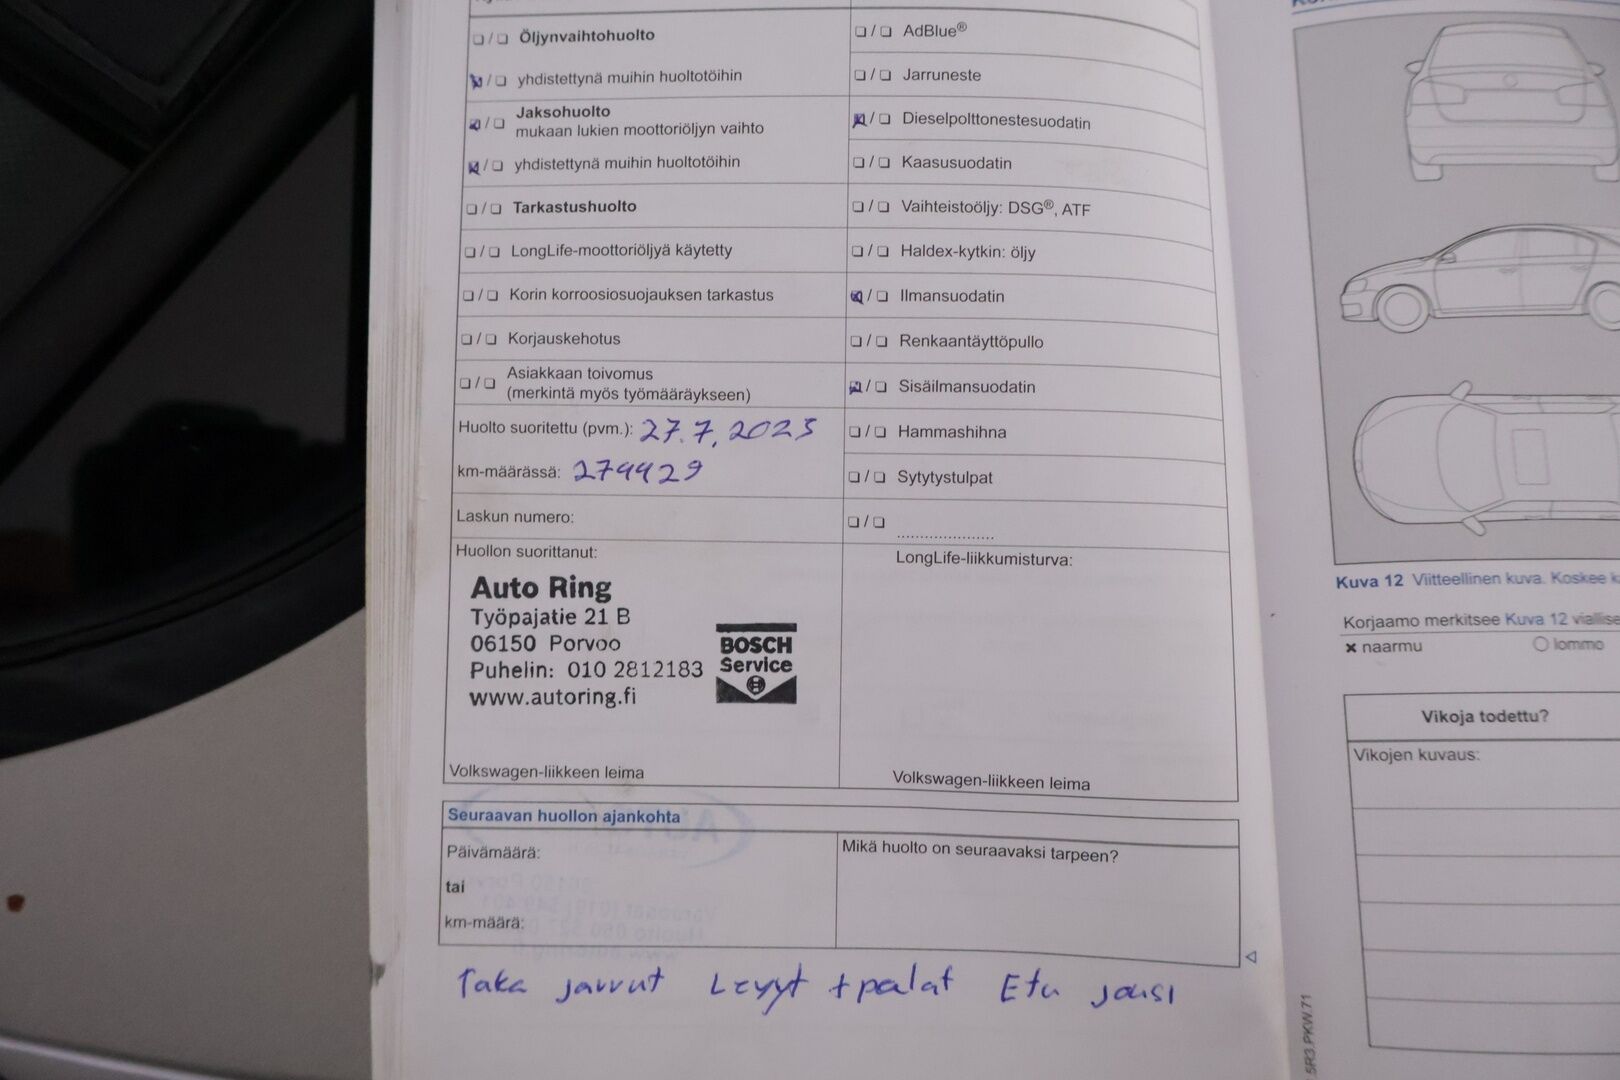 Öljynvaihtohuolto
yhdistettynä muihin huoltotöihin
Jaksohuolto
mukaan lukien moottoriöljyn vaihto
yhdistettynä muihin huoltotöihin
Tarkastushuolto
LongLife-moottoriöljyä käytetty
Korin korroosiosuojauksen tarkastus
Korjauskehotus
Asiakkaan toivomus
(merkintä myös työmääräykseen)
Huolto suoritettu (pvm.): 27.7.2023
km-määrässä: 279929
Laskun numero:
Huollon suorittanut:
Auto Ring
Työpajatie 21 B
06150 Porvoo
Puhelin: 010 2812183
www.autoring.fi
BOSCH
Service
Volkswagen-liikkeen leima
AdBlue®
Jarruneste
Dieselpolttonestesuodatin
Kaasusuodatin
Vaihteistoöljy: DSG®, ATF
Haldex-kytkin: öljy
Ilmansuodatin
Renkaantäyttöpullo
Sisäilmansuodatin
Hammashihna
Sytytystulpat
LongLife-liikkumisturva:
Volkswagen-liikkeen leima
Seuraavan huollon ajankohta
Päivämäärä:
tai
km-määrä:
Mikä huolto on seuraavaksi tarpeen?
Taka jarrut Levyt + palat Etu jousi
Kuva 12 Viitteellinen kuva. Koskee
Korjaamo merkitsee Kuva 12
naarmu
lommo
Vikoja todettu?
Vikojen kuvaus:
5R3.PKW.71